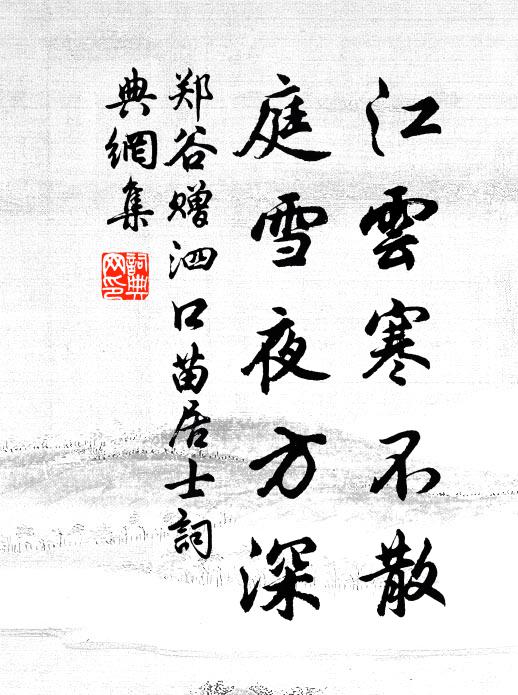 江雲寒不散
庭雪夜方深
郑谷赠泗口苗居士詞
典網集
詞典網印